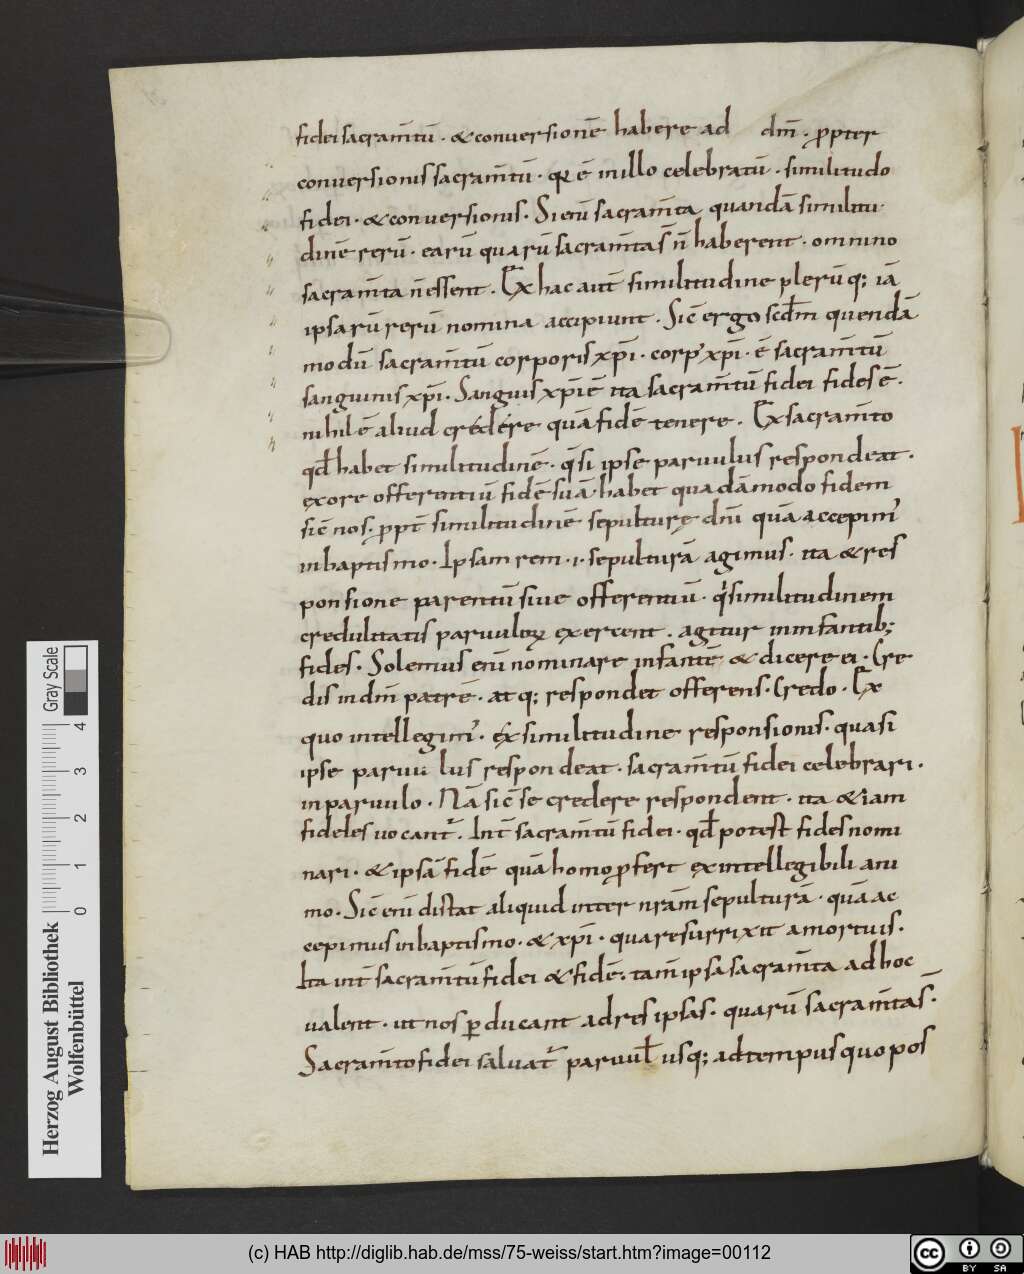 fidei sacram̄tū · & conuersionē habere ad dm̄ · ꝓpter
conuersionis sacram̄tū · qđ ē in illo celebratū · similitudo
fidei · & conuersionis · Si enī sacram̄ta quandā similitu
dinē rerū · earū quarū sacram̄ta s̄ n̄ haberent · omnino
sacram̄ta n̄ essent · Ex hac aut̄ similitudine plerūq; iā
ipsarū rerū nomina accipiunt · Sic̄ ergo scđm quendā
modū sacram̄tū corporis xp̄i · corp' xp̄i · ē sacram̄tū
sanguinis xp̄i · Sanguis xp̄i ē ita sacram̄tū fidei fides ē ·
nihil ē aliud credere quā fidē tenere · Ex sacram̄to
qđ habet similitudinē · q̄si ipse paruulus respondeat ·
ex ore offerentiū fidē suā habet quadā modo fidem
sic̄ nos · ꝓpt̄ similitudinē sepulturę dn̄i quā accepim'
in baptismo · Ipsam rem · i · sepulturā agimus · ita & res
ponsione parentū siue offerentiū · q̄ similitudinem
credulitatis paruuloꝝ exercent · agitur in infantib;
fides · Solemus enī nominare infantē & dicere ei · Cre
dis in dm̄ patrē · atq; respondet offerens · Credo · Ex
quo intellegim' · ex similitudine responsionis · quasi
ipse paruu lus respondeat · sacram̄tū fidei celebrari ·
in paruulo · Nā sic̄ se credere respondent · ita & iam
fideles uocant' · Int̄ sacram̄tū fidei · qđ potest fides nomi
nari · & ipsā fidē quā homo ꝓfert ex intellegibili ani
mo · Sic̄ enī distat aliquid inter nr̄am sepulturā · quā ac
cepimus in baptismo · & xp̄i · qua resurrixit a mortuis ·
Ita int̄ sacram̄tū fidei & fidē · tam̄ ipsa sacram̄ta ad hoc
ualent · ut nos ꝑducant ad res ipsas · quarū sacram̄ta s̄ ·
Sacram̄to fidei saluat' paruuł usq; ad tempus quo pos
Herzog August Bibliothek
Wolfenbüttel
0 1 2 3 4
Gray Scale
(c) HAB http://diglib.hab.de/mss/75-weiss/start.htm?image=00112
cc BY SA